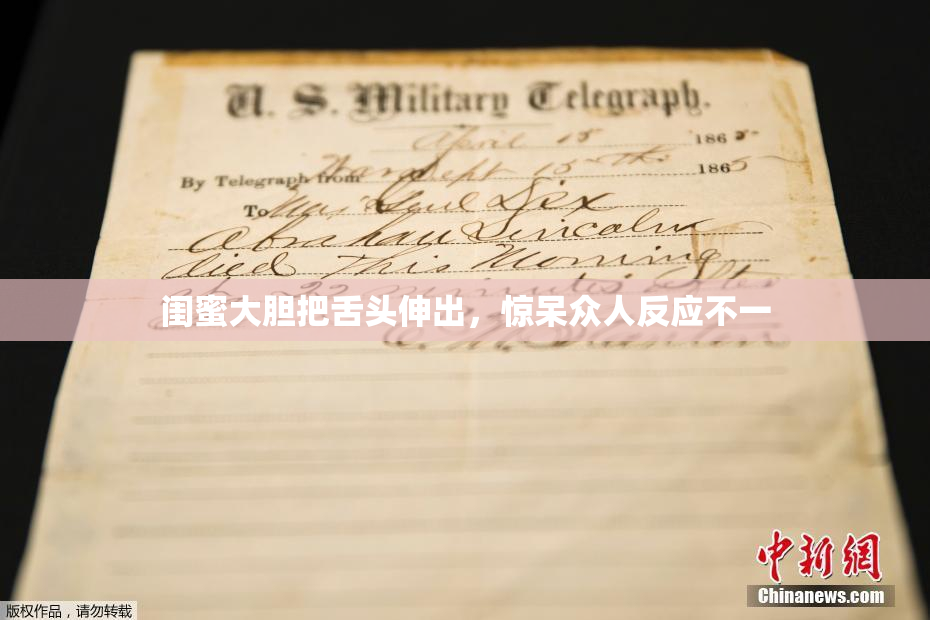 U. S. Military Telegraph.
April 15 1865
By Telegraph from War Dept 15th 1865
To Maj Genl Dix
Abraham Lincoln
died This Morning
at 22 minutes after
闺蜜大胆把舌头伸出，惊呆众人反应不一
E. M. Stanton
中新网
Chinanews.com
版权作品，请勿转载